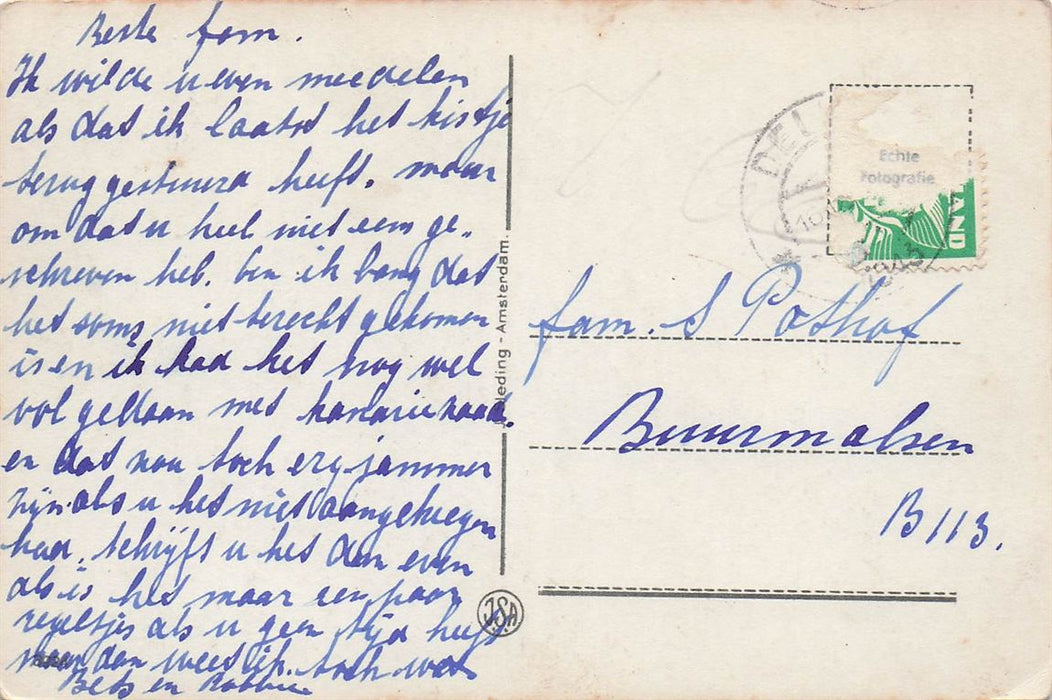 Beste fam.
Ik wilde u even meedelen
als dat ik laatst het kistje
terug gestuurd heeft. maar
omdat u heel niet eens ge-
schreven heb. ben ik bang dat
het soms niet terecht gekomen
is en ik had het nog wel
vol gedaan met kanariezaad.
en dat zou toch erg jammer
zijn als u het niet aangekregen
had. schrijft u het dan even
al is het maar een paar
regeltjes als u geen tijd heeft
maar dan weet ik toch wat
Bets en Robbie
leding - Amsterdam.
J.S.A
DEL
10
Echte
Fotografie
LAND
fam. S Pothof
Buurmalsen
B 113.